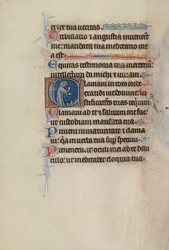 et lex tua veritas.
Tribulatio et angustia invenerunt
me: mandata tua meditatio me
a est
Equitas testimonia tua in eternum
intellectum da michi et vivam.
Clamavi in toto corde
exaudi me domine: iu
stificationes tuas requiram
Clamavi ad te salvum me fac:
ut custodiam mandata tua
Preveni in maturitate et clama
vi: quia in verba tua super speravi.
Prevenerunt oculi mei ad te dilu
culo: ut meditarer eloquia tua